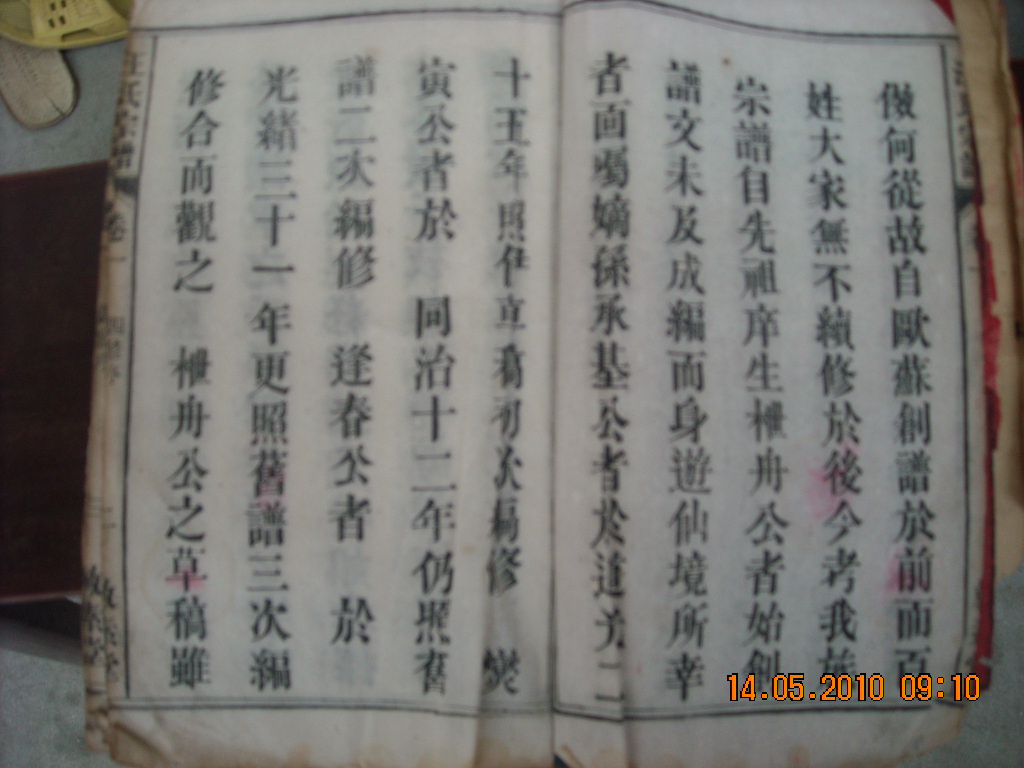 倣何從故自歐蘇創譜於前而百
姓大家無不續修於後今考我族
宗譜自先祖庠生枻舟公者始創
譜文未及成編而身遊仙境所幸
者面囑嫡孫承基公者於道光二
十五年照作立爲初次編修 爕
寅公者於 同治十二年仍照舊
譜二次編修 逢春公者 於
光緒三十一年更照舊譜三次編
修合而觀之 枻舟公之草稿雖
氏宗譜
卷一
14.05.2010 09:10